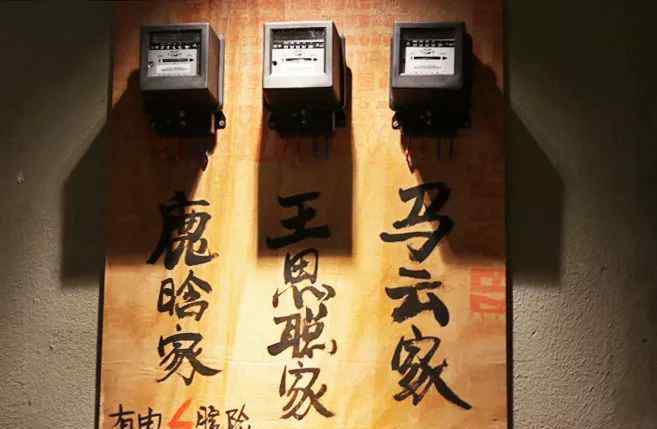 鹿晗家
王思聪家
马云家
有电 险